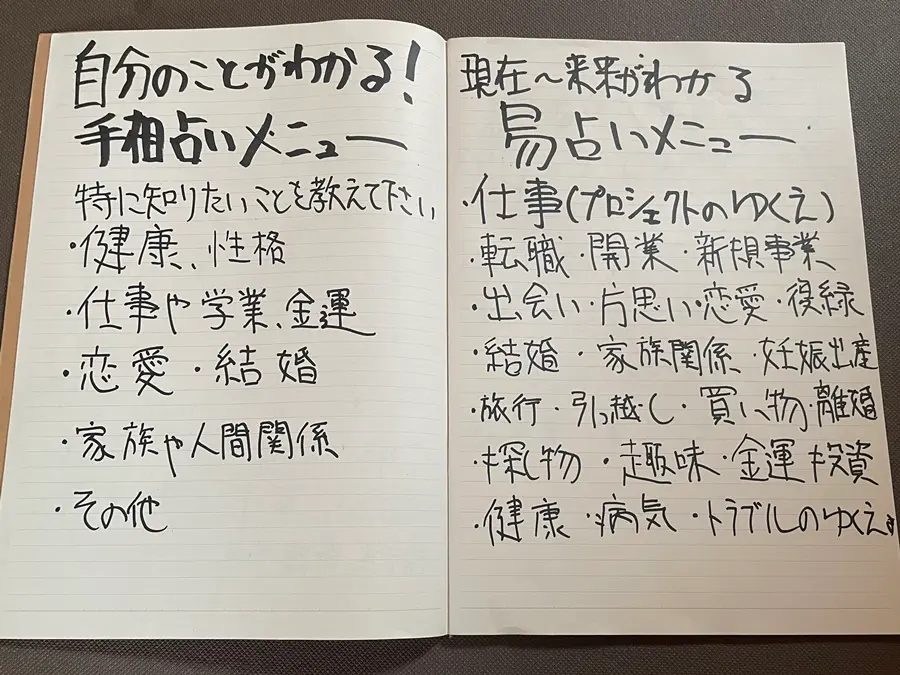 自分のことがわかる!
手相占いメニュー
特に知りたいことを教えて下さい
・健康、性格
・仕事や学業、金運
・恋愛・結婚
・家族や人間関係
・その他
現在~未来がわかる
易占いメニュー
・仕事(プロジェクトのゆくえ)
・転職・開業・新規事業
・出会い・片思い・恋愛・復縁
・結婚・家族関係・妊娠出産
・旅行・引っ越し・買い物・離婚
・探し物・趣味・金運 投資
・健康・病気・トラブルのゆくえ